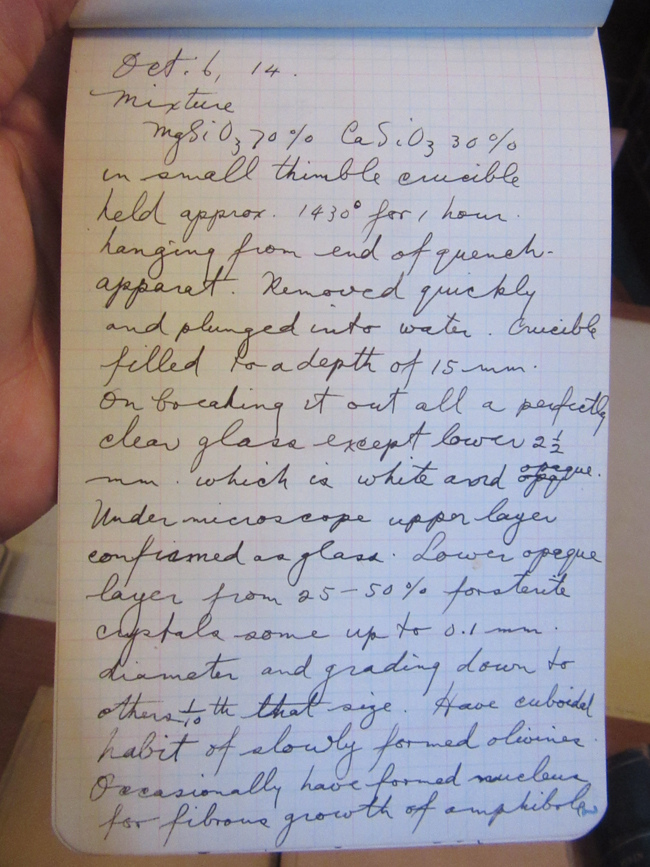 Oct. 6, 14.
Mixture
MgSiO3 70% CaSiO3 30%
in small thimble crucible
held approx. 1430° for 1 hour.
hanging from end of quench-
apparat. Removed quickly
and plunged into water. Crucible
filled to a depth of 15 mm.
On breaking it out all a perfectly
clear glass except lower 2 1/2
mm. which is white and opaque.
Under microscope upper layer
confirmed as glass. Lower opaque
layer from 25-50% forsterite
crystals some up to 0.1 mm.
diameter and grading down to
others 1/10 th that size. Have cuboidal
habit of slowly formed olivines.
Occasionally have formed nucleus
for fibrous growth of amphibole